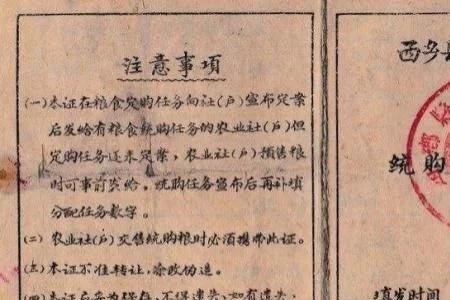 注意事项
(一)本证在粮食定购任务向社(戶)宣布定案
后发给有粮食统购任务的农业社(戶)但
定购任务还未定案,农业社(戶)预售粮
时可事前发给。统购任务宣布后再补填
分配任务数字。
(二)农业社(戶)交售统购粮时必须携带此证。
(三)本证不准转让,涂改伪造。
(四)本证应妥为保存,不得遗失,如有遗失,
西乡县
统购
填发时间